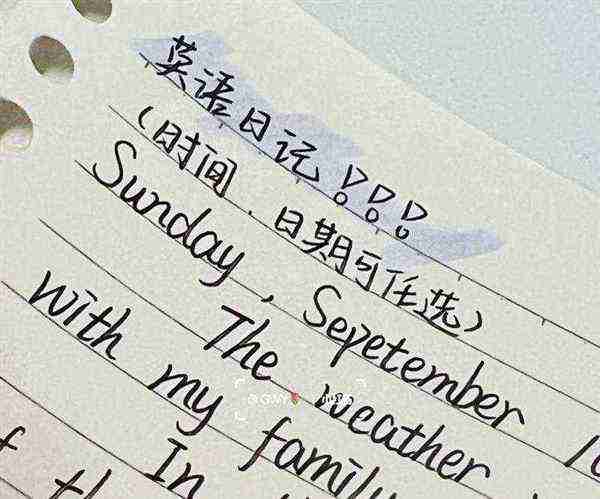 英语日记!!!
(时间、日期可任选)
Sunday, Sepetember
The weather
with my family
In